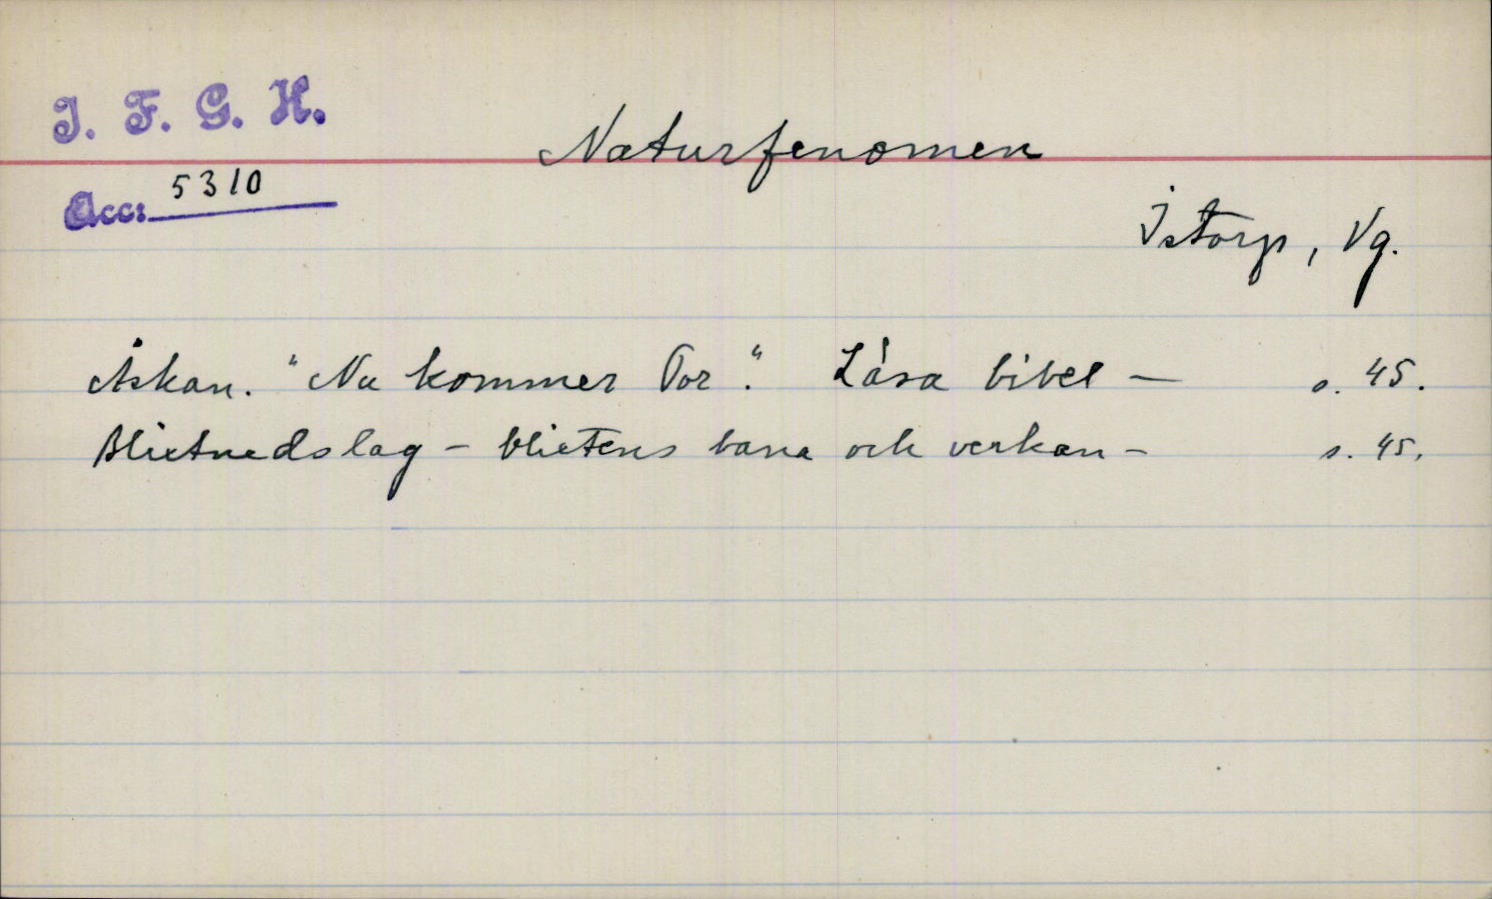 I. F. G. H.
Naturfenomen
Acc: 5310
Istorp, Vg.
Åskan. "Nu kommer Tor". Läsa bibel — s. 45.
Blixtnedslag - blixtens bana och verkan - s. 45.